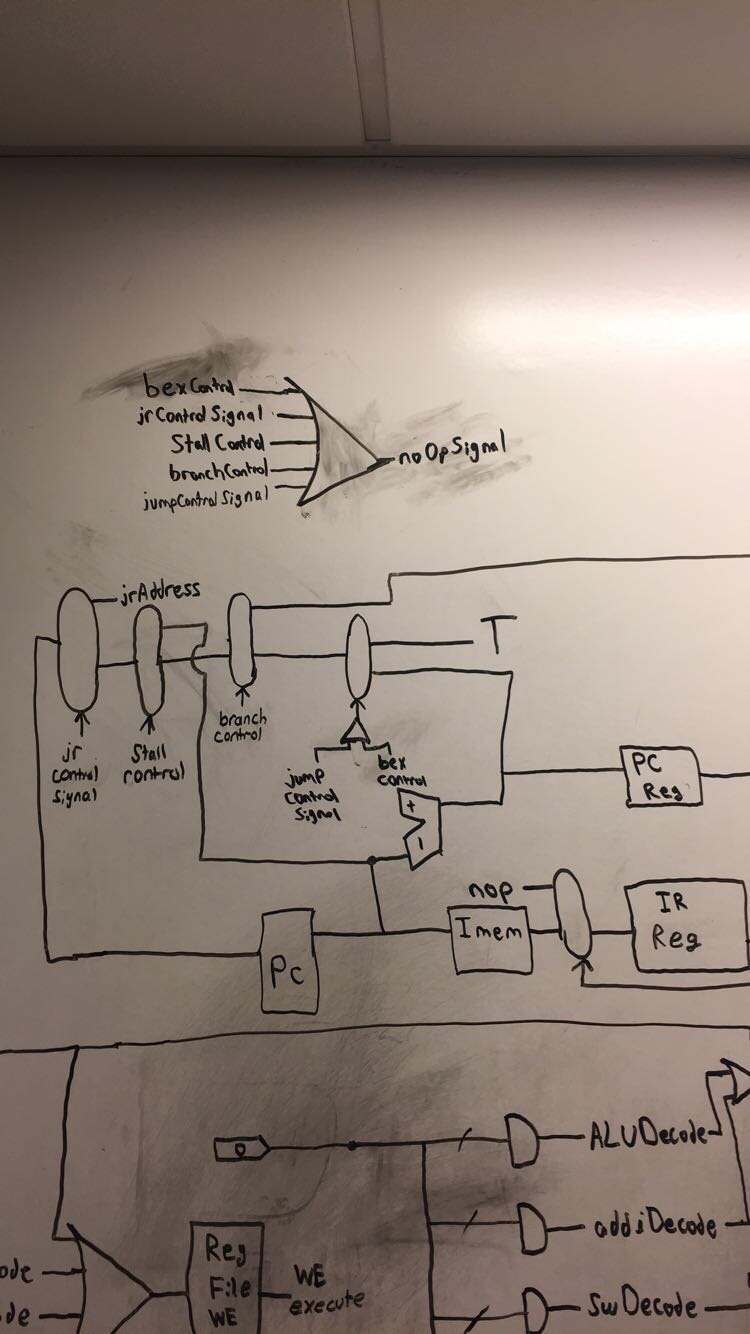 bexControl
jrControlSignal
Stall Control
branchControl
jumpControlSignal
noOpSignal
jrAddress
T
branch
control
jr
control
signal
Stall
control
jump
control
signal
bex
control
+
1
PC
Reg
nop
Imem
IR
Reg
PC
0
ALUDecode
addiDecode
SwDecode
Reg
File
WE
WE
execute
ode
de